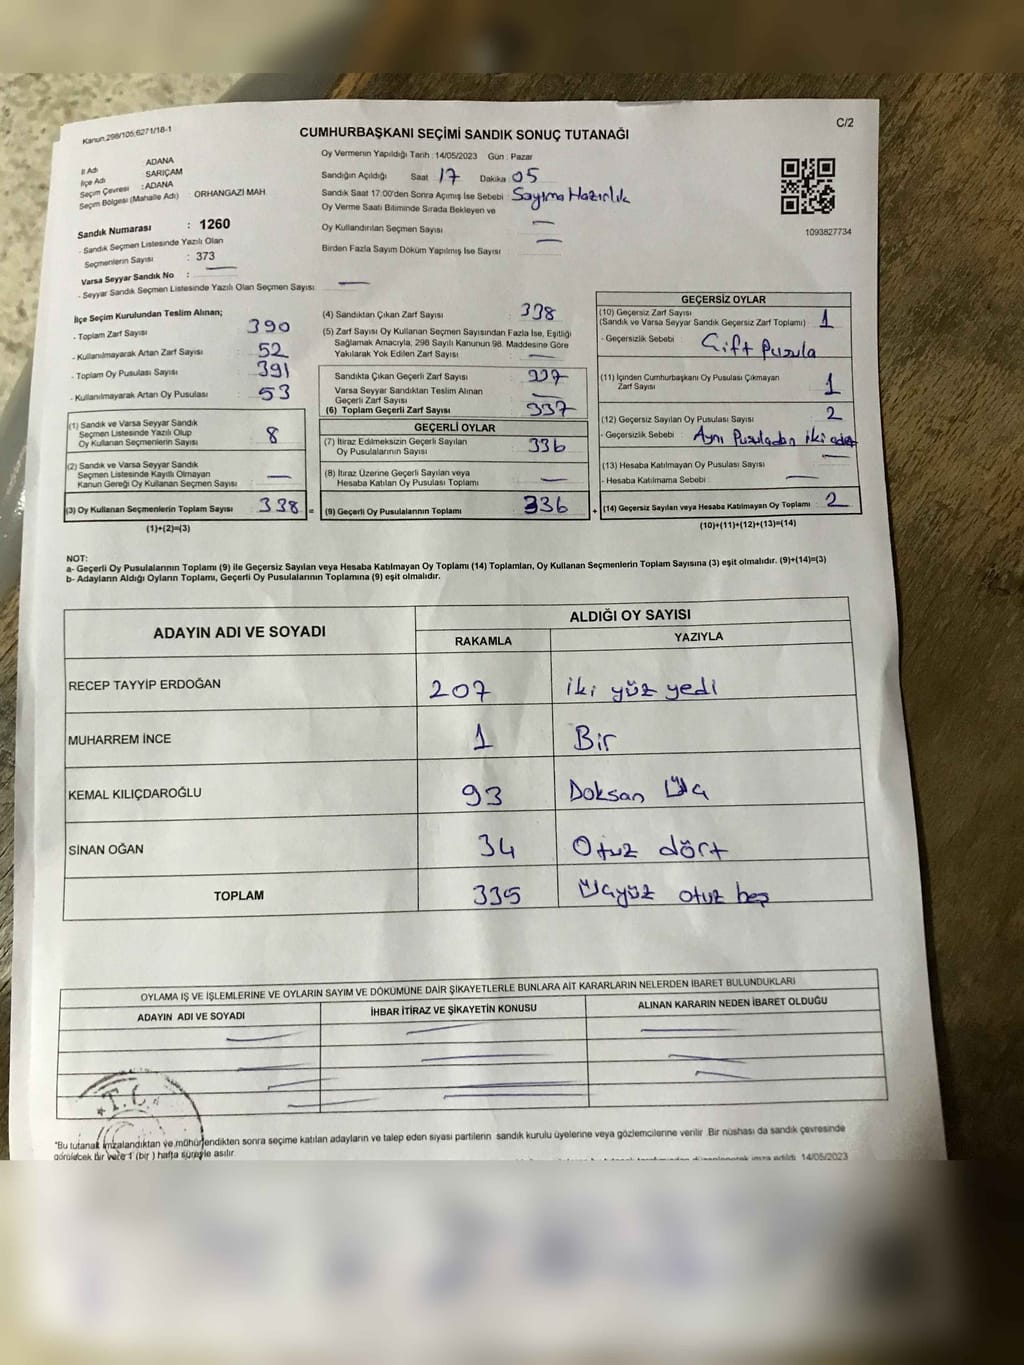 Kanun.298/105;6271/18-1
C/2
CUMHURBAŞKANI SEÇİMİ SANDIK SONUÇ TUTANAĞI
İl Adı : ADANA
İlçe Adı : SARIÇAM
Seçim Çevresi : ADANA
Seçim Bölgesi (Mahalle Adı) : ORHANGAZI MAH.
Sandık Numarası : 1260
- Sandık Seçmen Listesinde Yazılı Olan
Seçmenlerin Sayısı : 373
Varsa Seyyar Sandık No : —
- Seyyar Sandık Seçmen Listesinde Yazılı Olan Seçmen Sayısı : —
Oy Vermenin Yapıldığı Tarih : 14/05/2023 Gün : Pazar
Sandığın Açıldığı Saat 17 Dakika 05
Sandık Saat 17:00'den Sonra Açımış İse Sebebi : Sayıma Hazırlık
Oy Verme Saati Bitiminde Sırada Bekleyen ve
Oy Kullandırılan Seçmen Sayısı : —
Birden Fazla Sayım Döküm Yapılmış İse Sayısı : —
1093827734
İlçe Seçim Kurulundan Teslim Alınan;
- Toplam Zarf Sayısı : 390
- Kullanılmayarak Artan Zarf Sayısı : 52
- Toplam Oy Pusulası Sayısı : 391
- Kullanılmayarak Artan Oy Pusulası : 53
(1) Sandık ve Varsa Seyyar Sandık
Seçmen Listesinde Yazılı Olup
Oy Kullanan Seçmenlerin Sayısı : 8
(2) Sandık ve Varsa Seyyar Sandık
Seçmen Listesinde Kayıtlı Olmayan
Kanun Gereği Oy Kullanan Seçmen Sayısı : —
(3) Oy Kullanan Seçmenlerin Toplam Sayısı : 338 =
(1)+(2)=(3)
(4) Sandıktan Çıkan Zarf Sayısı : 338
(5) Zarf Sayısı Oy Kullanan Seçmen Sayısından Fazla İse, Eşitliği
Sağlamak Amacıyla, 298 Sayılı Kanunun 98. Maddesine Göre
Yakılarak Yok Edilen Zarf Sayısı : —
Sandıkta Çıkan Geçerli Zarf Sayısı : 337
Varsa Seyyar Sandıktan Teslim Alınan
Geçerli Zarf Sayısı : —
(6) Toplam Geçerli Zarf Sayısı : 337
GEÇERLİ OYLAR
(7) İtiraz Edilmeksizin Geçerli Sayılan
Oy Pusulalarının Sayısı : 336
(8) İtiraz Üzerine Geçerli Sayılan veya
Hesaba Katılan Oy Pusulası Toplamı : —
(9) Geçerli Oy Pusulalarının Toplamı : 336 +
GEÇERSİZ OYLAR
(10) Geçersiz Zarf Sayısı
(Sandık ve Varsa Seyyar Sandık Geçersiz Zarf Toplamı) : 1
- Geçersizlik Sebebi : Çift Pusula
(11) İçinden Cumhurbaşkanı Oy Pusulası Çıkmayan
Zarf Sayısı : 1
(12) Geçersiz Sayılan Oy Pusulası Sayısı : 2
- Geçersizlik Sebebi : Aynı Pusuladan iki adet
(13) Hesaba Katılmayan Oy Pusulası Sayısı : —
- Hesaba Katılmama Sebebi : —
(14) Geçersiz Sayılan veya Hesaba Katılmayan Oy Toplamı : 2
(10)+(11)+(12)+(13)=(14)
NOT:
a- Geçerli Oy Pusulalarının Toplamı (9) ile Geçersiz Sayılan veya Hesaba Katılmayan Oy Toplamı (14) Toplamları, Oy Kullanan Seçmenlerin Toplam Sayısına (3) eşit olmalıdır. (9)+(14)=(3)
b- Adayların Aldığı Oyların Toplamı, Geçerli Oy Pusulalarının Toplamına (9) eşit olmalıdır.
ADAYIN ADI VE SOYADI ALDIĞI OY SAYISI
RAKAMLA YAZIYLA
RECEP TAYYİP ERDOĞAN 207 iki yüz yedi
MUHARREM İNCE 1 Bir
KEMAL KILIÇDAROĞLU 93 Doksan Üç
SİNAN OĞAN 34 Otuz dört
TOPLAM 335 Üçyüz otuz beş
OYLAMA İŞ VE İŞLEMLERİNE VE OYLARIN SAYIM VE DÖKÜMÜNE DAİR ŞİKAYETLERLE BUNLARA AİT KARARLARIN NELERDEN İBARET BULUNDUKLARI
ADAYIN ADI VE SOYADI İHBAR İTİRAZ VE ŞİKAYETİN KONUSU ALINAN KARARIN NEDEN İBARET OLDUĞU
T.C.
*Bu tutanak imzalandıktan ve mühürlendikten sonra seçime katılan adayların ve talep eden siyasi partilerin sandık kurulu üyelerine veya gözlemcilerine verilir. Bir nüshası da sandık çevresinde
görülecek bir yere 1 (bir ) hafta süreyle asılır.
imza edildi. 14/05/2023